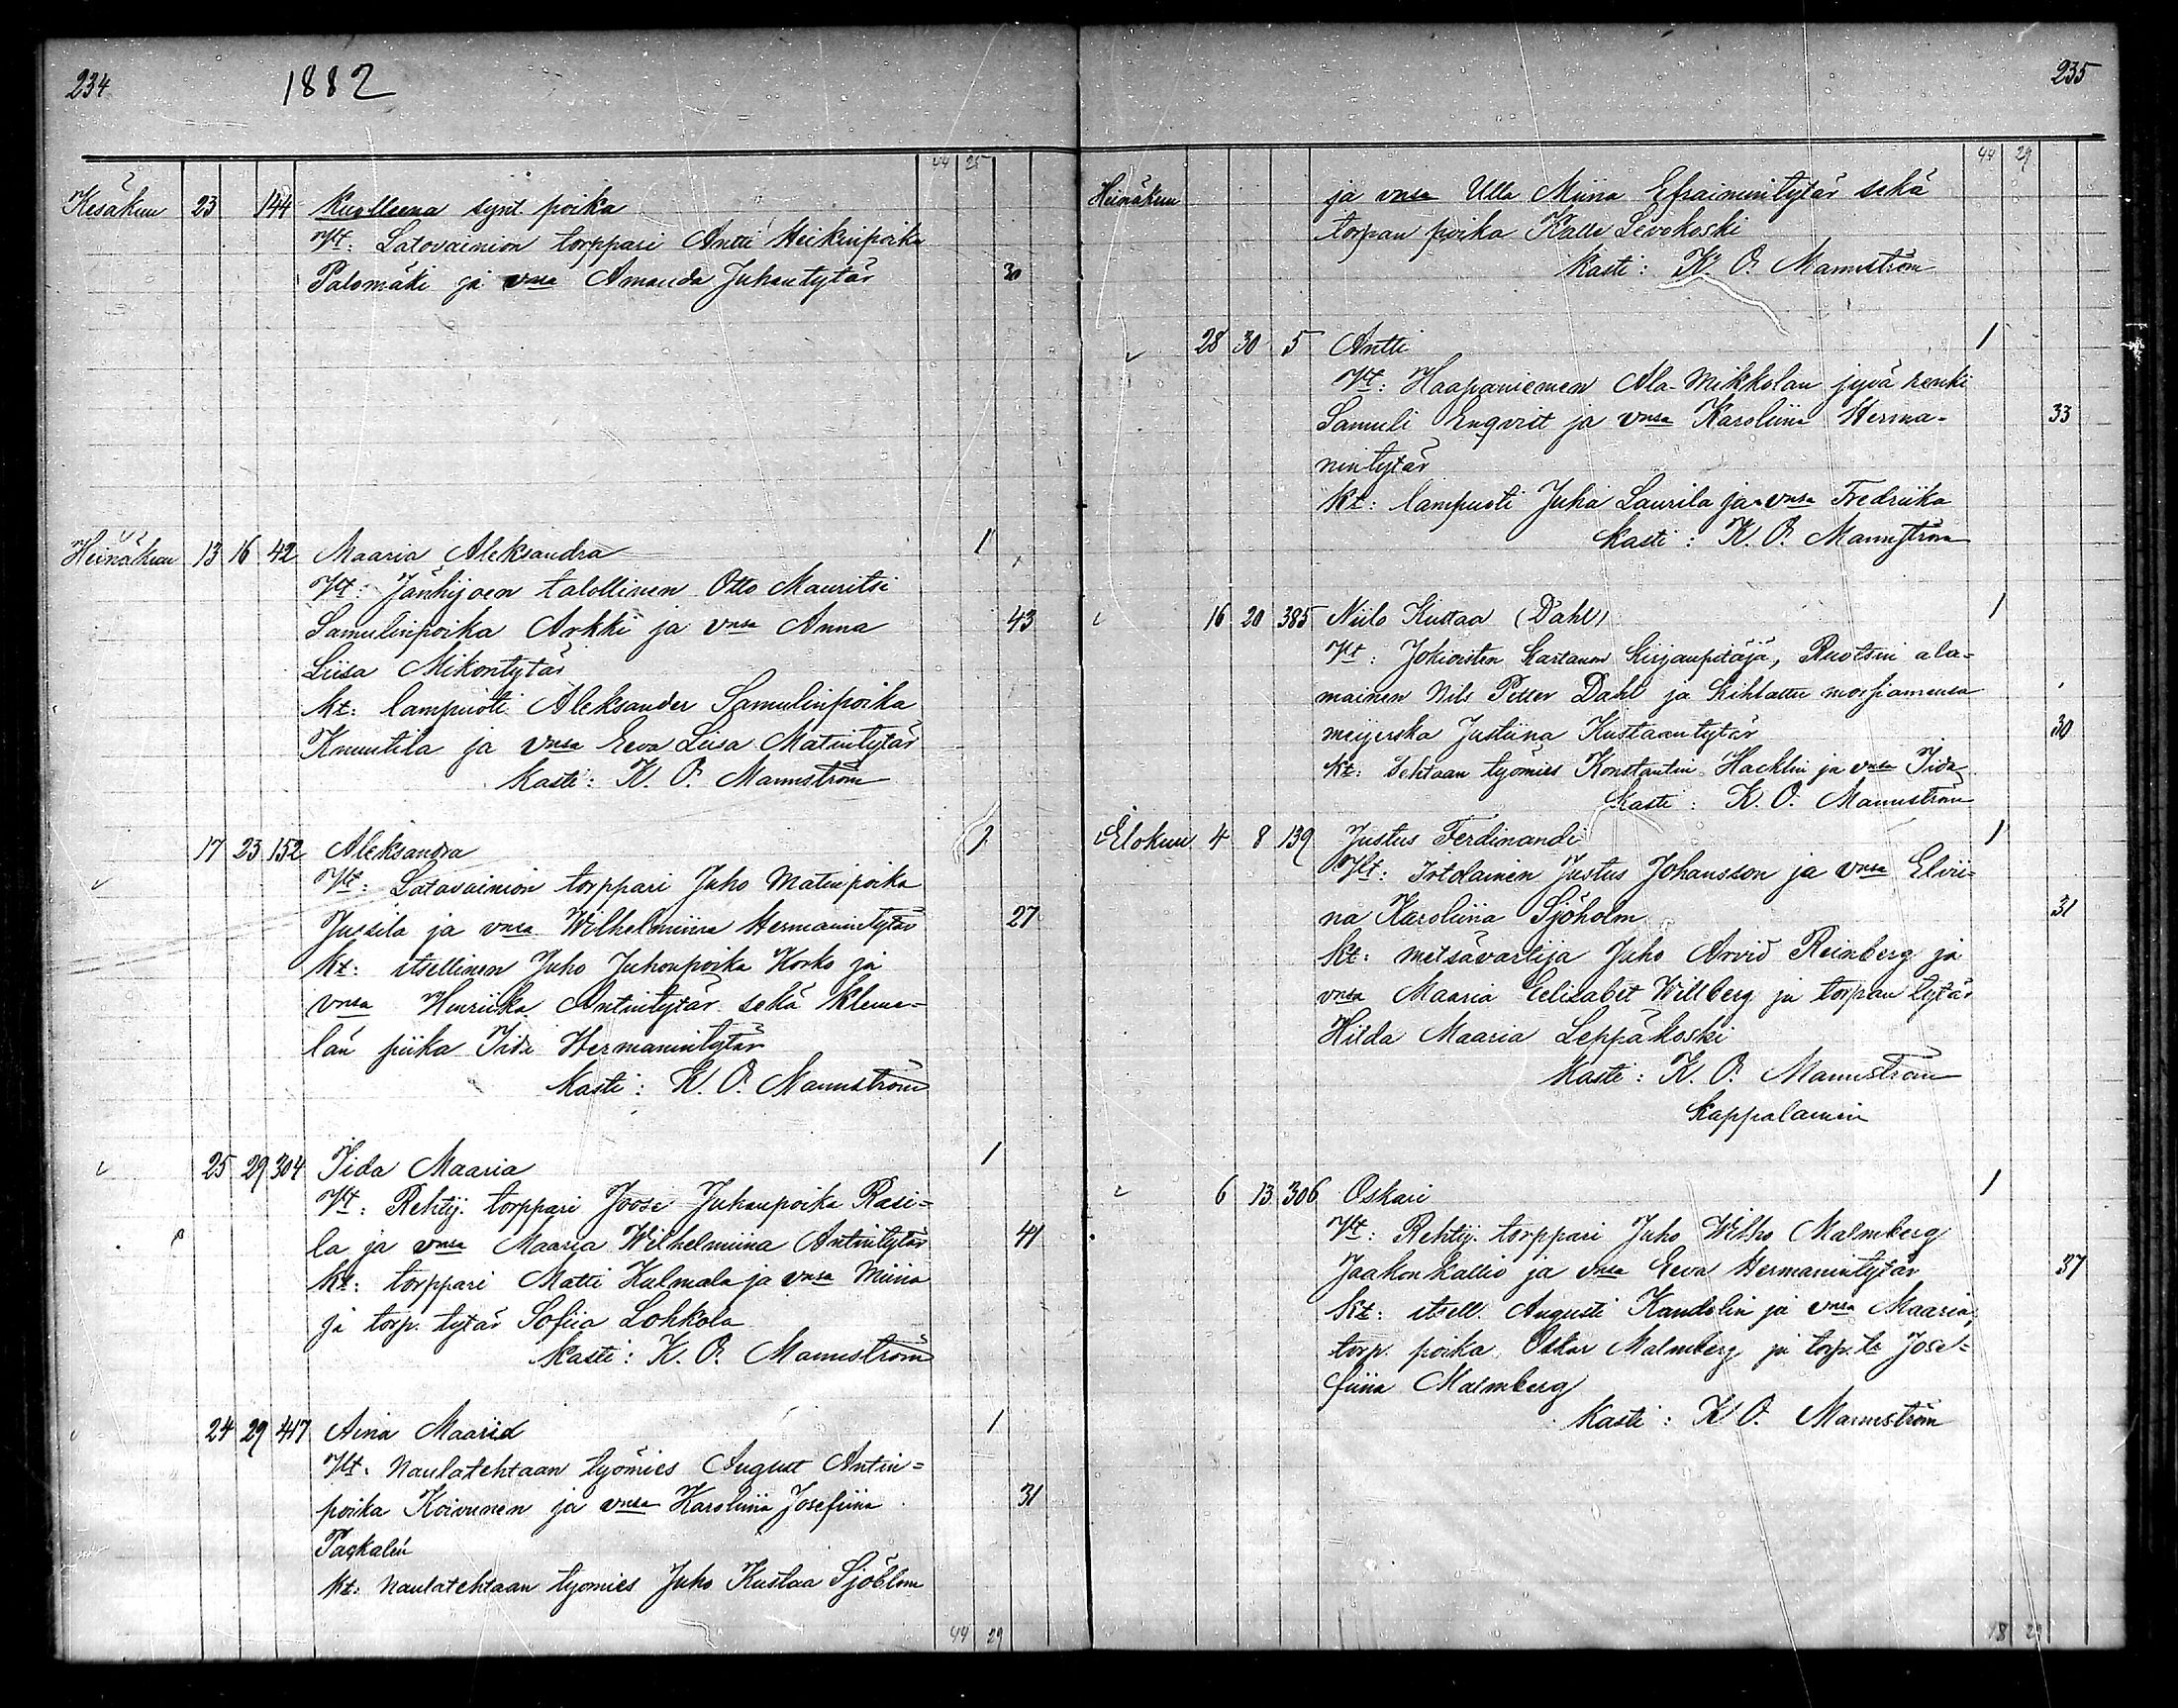 234
1882
44 25
Kesäkuu 23 144 Kuolleena synt. poika
Vt: Latovainion torppari Antti Heikinpoika
Palomäki ja vnsa Amanda Juhantytär 30
Heinäkuu 13 16 42 Maaria Aleksandra 1
Vt: Jänhijoen talollinen Otto Mauritsi
Samulinpoika Arkki ja vnsa Anna 43
Liisa Mikontytär
kt: lampuoti Aleksander Samulinpoika
Knuutila ja vnsa Eeva Liisa Matintytär
Kasti: K. O. Mannström
17 23 152 Aleksandra 1
Vt: Latovainion torppari Juho Matinpoika
Jussila ja vnsa Wilhelmiina Hermannintytär 27
kt: itsellinen Juho Juhonpoika Korko ja
vnsa Henriika Antintytär sekä Kleme-
län piika Iida Hermanintytär
Kasti: K. O. Mannström
25 29 304 Iida Maaria 1
Vt: Rehtij. torppari Joose Juhanpoika Rasi=
la ja vnsa Maaria Wilhelmiina Antintytär 41
kt: torppari Matti Kulmala ja vnsa Miina
ja torp. tytär Sofiia Lohkola
Kasti: K. O. Mannström
24 29 417 Aina Maaria 1
Vt. Naulatehtaan työmies August Antin=
poika Koivunen ja vnsa Karoliina Josefiina 31
Paskalin
kt: Naulatehtaan työmies Juho Kustaa Sjöblom
44 29
235
44 29
Heinäkuu ja vnsa Ulla Miina Efraimintytär sekä
torpan poika Kalle Levokoski
Kasti: K. O. Mannström
28 30 5 Antti 1
Vt: Haapaniemen Ala-Mikkolan jyvä renki
Samuli Enqvist ja vnsa Karoliina Herma- 33
nintytär
kt: lampuoti Juha Laurila ja vnsa Fredriika
Kasti: K. O. Mannström
16 20 385 Niilo Kustaa (Dahl) 1
Vt: Jokioisten Kartanon Kirjanpitäjä, Ruotsin ala-
mainen Nils Petter Dahl ja kihlattu morsiamensa
meijerska Justiina Kustaantytär 30
kt: Tehtaan työmies Konstantin Hacklin ja vnsa Iida
Kasti: K. O. Mannström
Elokuu 4 8 139 Justus Ferdinandi 1
Vt: Irtolainen Justus Johansson ja vnsa Elvii-
na Karoliina Sjöholm 31
kt: metsävartija Juho Arvid Reinberg ja
vnsa Maaria Eelisabet Willberg ja torpan tytär
Hilda Maaria Leppäkoski
Kasti: K. O. Mannström
Kappalainen
6 13 306 Oskari 1
Vt: Rehtij. torppari Juho Wilho Malmberg
Jaakonkallio ja vnsa Eeva Hermanintytär 37
kt: itsell. Augusti Kandelin ja vnsa Maaria,
torp. poika Oskar Malmberg ja torp. tr Jose=
fiina Malmberg
Kasti: K. O. Mannström
18 29